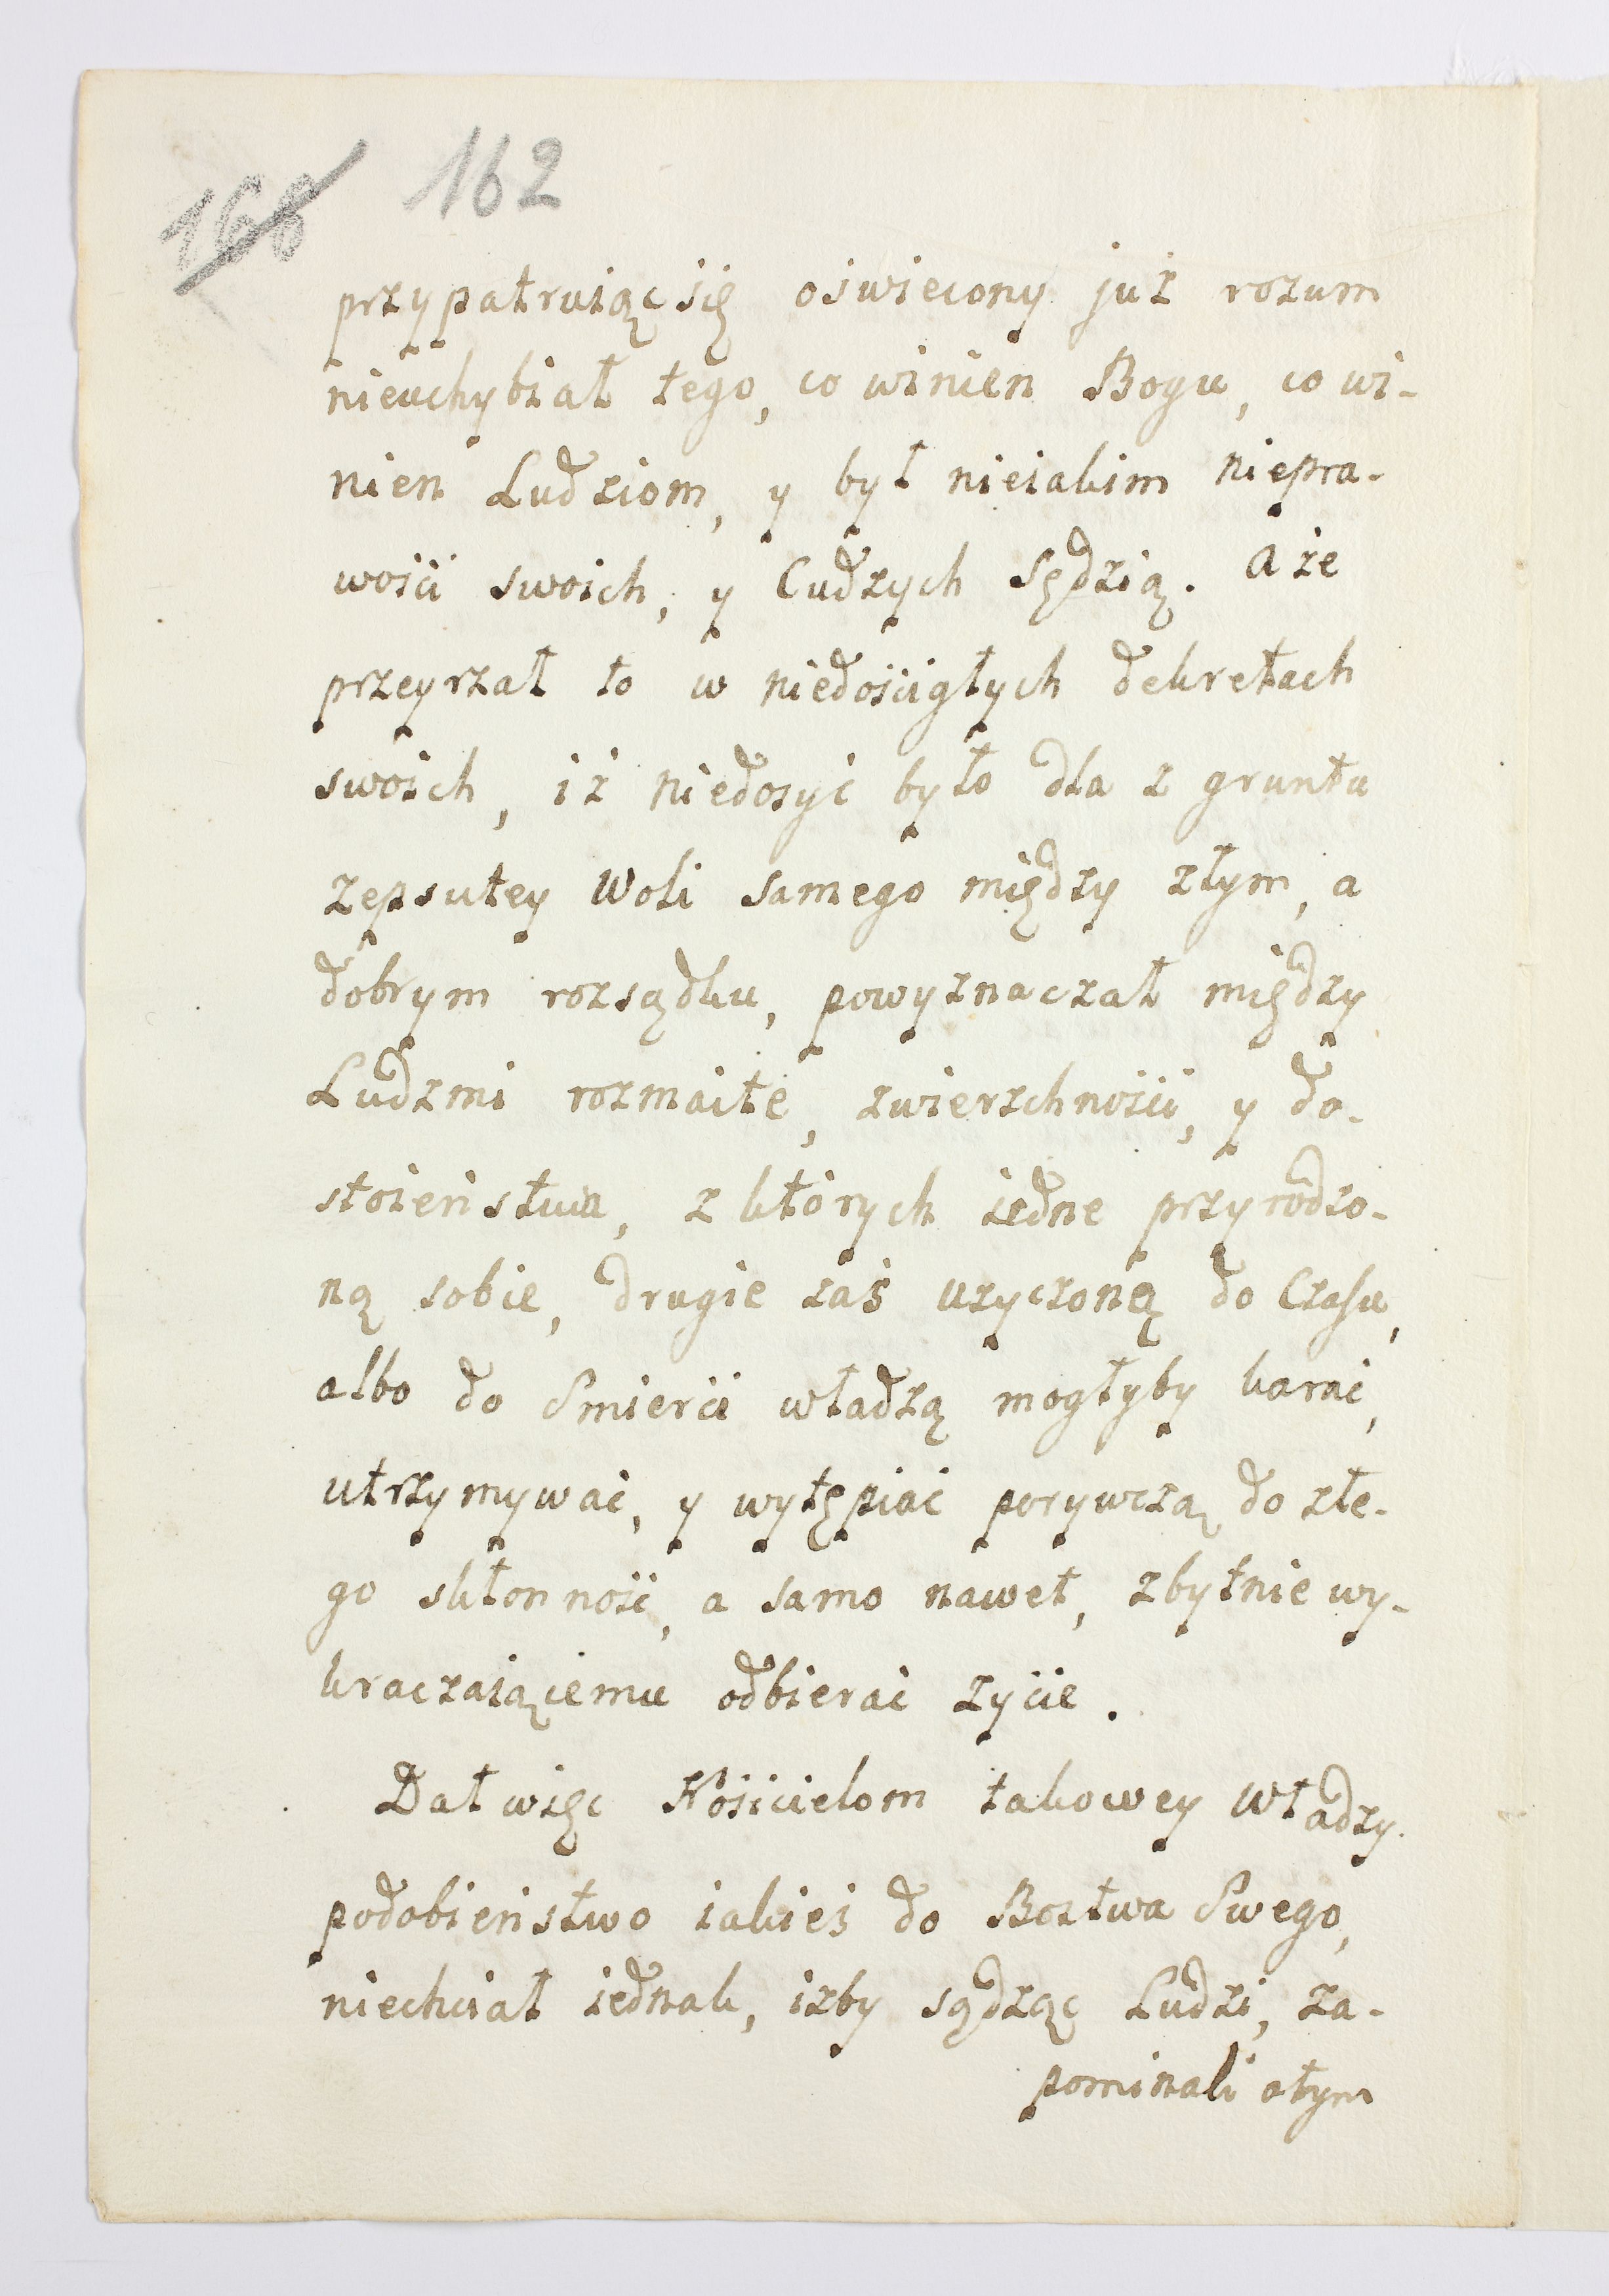 168 162
przypatruiąc się oswiecony już rozum
nieuchybiał tego, co winien Bogu, co wi-
nien Ludziom, y był nieiakim niepra-
wości swoich, y Cudzych Sędzią. A że
przeyrzał to w niedościgłych dekretach
swoich, iż niedosyć było dla z gruntu
zepsutey Woli samego między złym, a
dobrym rozsądku, powyznaczał między
Ludzmi rozmaite, zwierzchności, y do-
stoieństwa, z których iedne przyrodzo-
ną sobie, drugie zaś uzyczoną do Czasu,
albo do Smierci władzą mogłyby karać,
utrzymywać, y wytępiać porywczą do złe-
go skłonność, a samo nawet, zbytnie wy-
kraczaiącemu odbierać zycie.
Dał więc Kościelom takowey Władzy
podobieństwo iakieś do Boztwa Swego,
niechciał iednak, izby sądząc Ludzi, za-
pominali otym